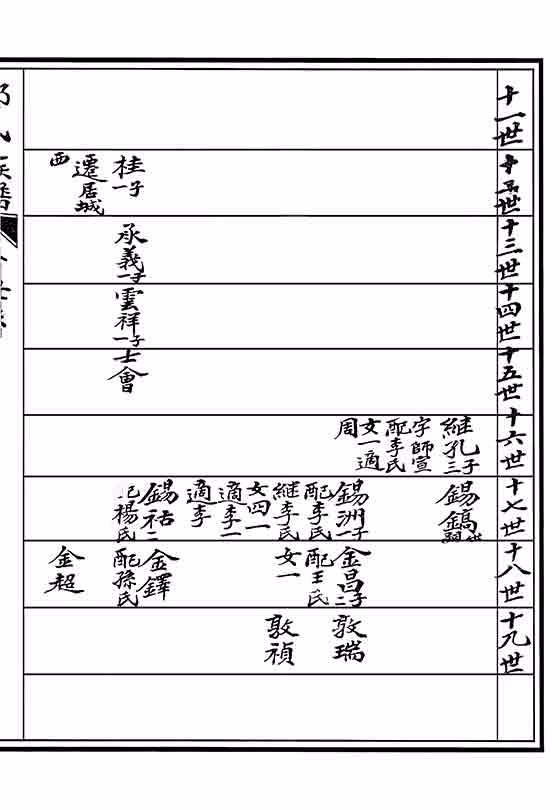 十一世
十二世
十三世
十四世
十五世
十六世
十七世
十八世
十九世
桂一子
遷居城
西
承義一子
雲祥一子
士會
維孔三子
字師宣
配李氏
女一適
周
錫鎬
錫洲一子
配李氏
繼李氏
女四一
適李二
適李
錫祜二
配楊氏
金昌二子
配王氏
女一
金鐸
配孫氏
金超
敦瑞
敦禎
氏族譜